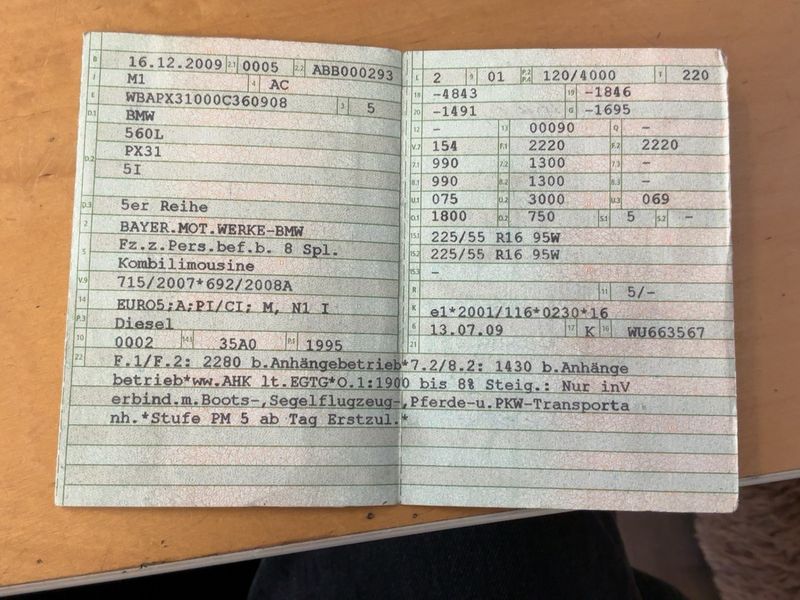 B 16.12.2009 2.1 0005 2.2 ABB000293
J M1 4 AC
E WBAPX31000C360908 3 5
D.1 BMW
560L
D.2 PX31
5I
D.3 5er Reihe
2 BAYER.MOT.WERKE-BMW
5 Fz.z.Pers.bef.b. 8 Spl.
Kombilimousine
V.9 715/2007*692/2008A
14 EURO5;A;PI/CI; M, N1 I
P.3 Diesel
10 0002 14.1 35A0 P.1 1995
L 2 9 01 P.2 P.4 120/4000 T 220
18 -4843 19 -1846
20 -1491 G -1695
12 - 13 00090 Q -
V.7 154 F.1 2220 F.2 2220
7.1 990 7.2 1300 7.3 -
8.1 990 8.2 1300 8.3 -
U.1 075 U.2 3000 U.3 069
O.1 1800 O.2 750 S.1 5 S.2 -
15.1 225/55 R16 95W
15.2 225/55 R16 95W
15.3 -
R 11 5/-
K e1*2001/116*0230*16
6 13.07.09 17 K 16 WU663567
21
22 F.1/F.2: 2280 b.Anhängebetrieb*7.2/8.2: 1430 b.Anhänge
betrieb*ww.AHK lt.EGTG*O.1:1900 bis 8% Steig.: Nur inV
erbind.m.Boots-,Segelflugzeug-,Pferde-u.PKW-Transporta
nh.*Stufe PM 5 ab Tag Erstzul.*